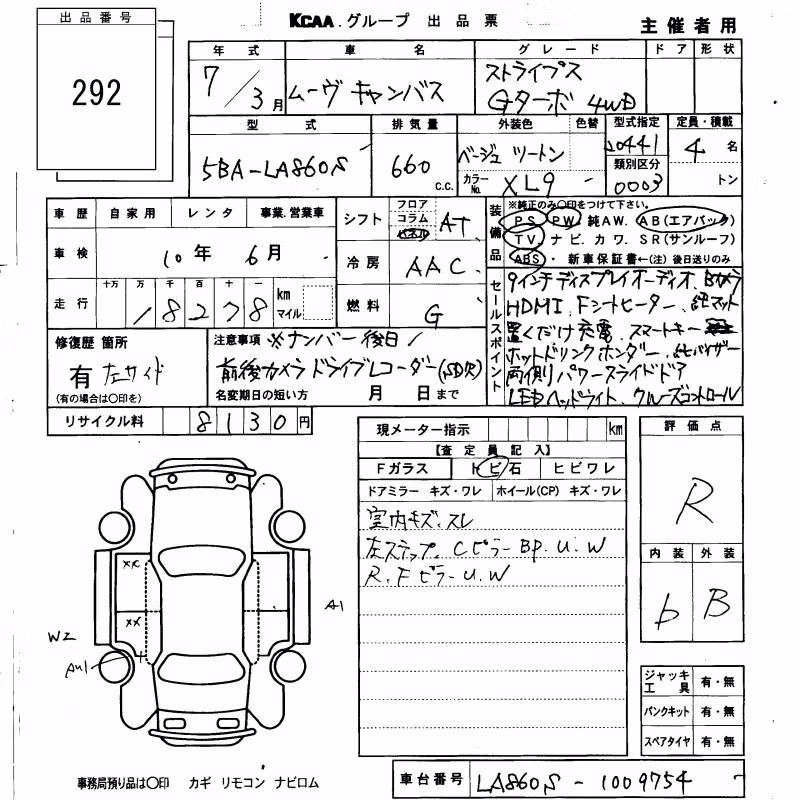 出品番号
292
KCAA.グループ 出品票
主催者用
年式 車名 グレード ドア 形状
7/3月 ムーヴ キャンバス ストライプス
Gターボ 4WD
型式 排気量 外装色 色替 型式指定 定員・積載
5BA-LA860S 660 C.C. ベージュ ツートン 20441 4名
カラーNo. XL9 類別区分 0003 トン
車歴 自家用 レンタ 事業.営業車
車検 10年 6月
走行 十万 万 千 百 十 一
18278 km マイル
シフト フロア コラム パネル AT
冷房 AAC
燃料 G
装備品 ※純正のみ〇印をつけて下さい。
PS PW 純AW. AB(エアバック)
TV. ナビ. カワ. SR(サンルーフ)
ABS・ 新車保証書←(注)後日送りのみ
セールスポイント
9インチディスプレイオーディオ、Bカメラ
HDMI、Fシートヒーター、純マット
置くだけ充電、スマートキー
ホットドリンクホルダー、純バイザー
両側パワースライドドア
LEDヘッドライト、クルーズコントロール
修復歴 箇所
有 左サイド
(有の場合は〇印を)
注意事項 ※ナンバー後日
前後カメラドライブレコーダー(SD欠)
名変期日の短い方 月 日まで
リサイクル料 8130円
現メーター指示 km
【査定員記入】
Fガラス トビ石 ヒビワレ
ドアミラー キズ・ワレ ホイール(CP) キズ・ワレ
室内キズ、スレ
左ステップ、Cピラー BP.U.W
R.Fピラー U.W
評価点
R
内装 外装
b B
XX
XX
A1
W2
AU1
ジャッキ工具 有・無
パンクキット 有・無
スペアタイヤ 有・無
事務局預り品は〇印 カギ リモコン ナビロム
車台番号 LA860S - 1009754